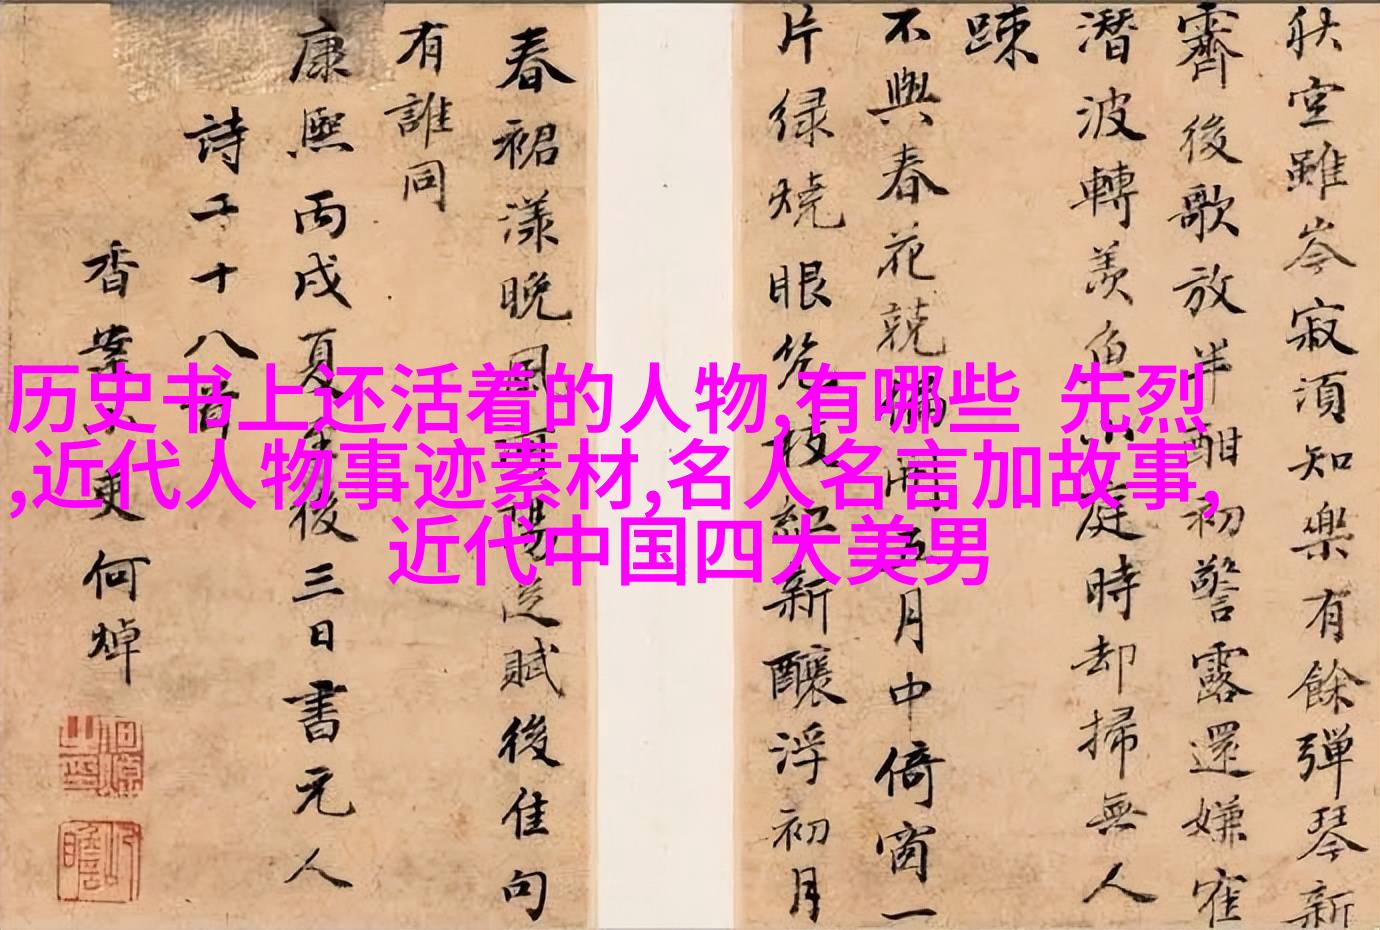 秋室雖岑寂須知樂有餘彈琴新
霽後歌放半酣初警露還嫌窄
潛波轉羨魚小庭時却掃無人
踈
不與春花競偏開五月中倚窗一
片緑燒眼幾枝紅新釀浮初月
春裙漾晚風開陽迄賦後佳句
有誰同
康熙丙戌夏至後三日書元人
詩二十八首
香案小吏何焯
历史书上还活着的人物,有哪些 先烈
,近代人物事迹素材,名人名言加故事,
近代中国四大美男